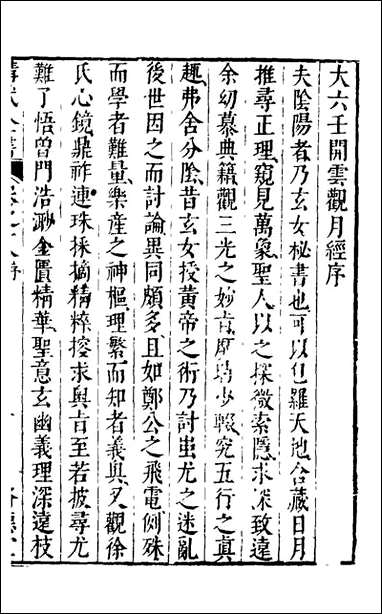 大六壬開雲觀月經序
夫陰陽者乃玄女秘書也可以包羅天地合藏日月
推尋正理窺見萬象聖人以之探微索隱求深致遠
余幼慕典籍觀三光之妙旨席少輟究五行之真
趣弗舍分陰昔玄女授黄帝之術乃討蚩尤之迷亂
後世因之而討論異同頗多且如鄭公之飛電側殊
而學者難量樂產之神樞理繁而知者義與又觀徐
氏心鏡鼎祚連珠採摘精粹控求與旨至若披尋尤
難了悟曽門浩渺金匱精華聖意玄幽義理深遠枝